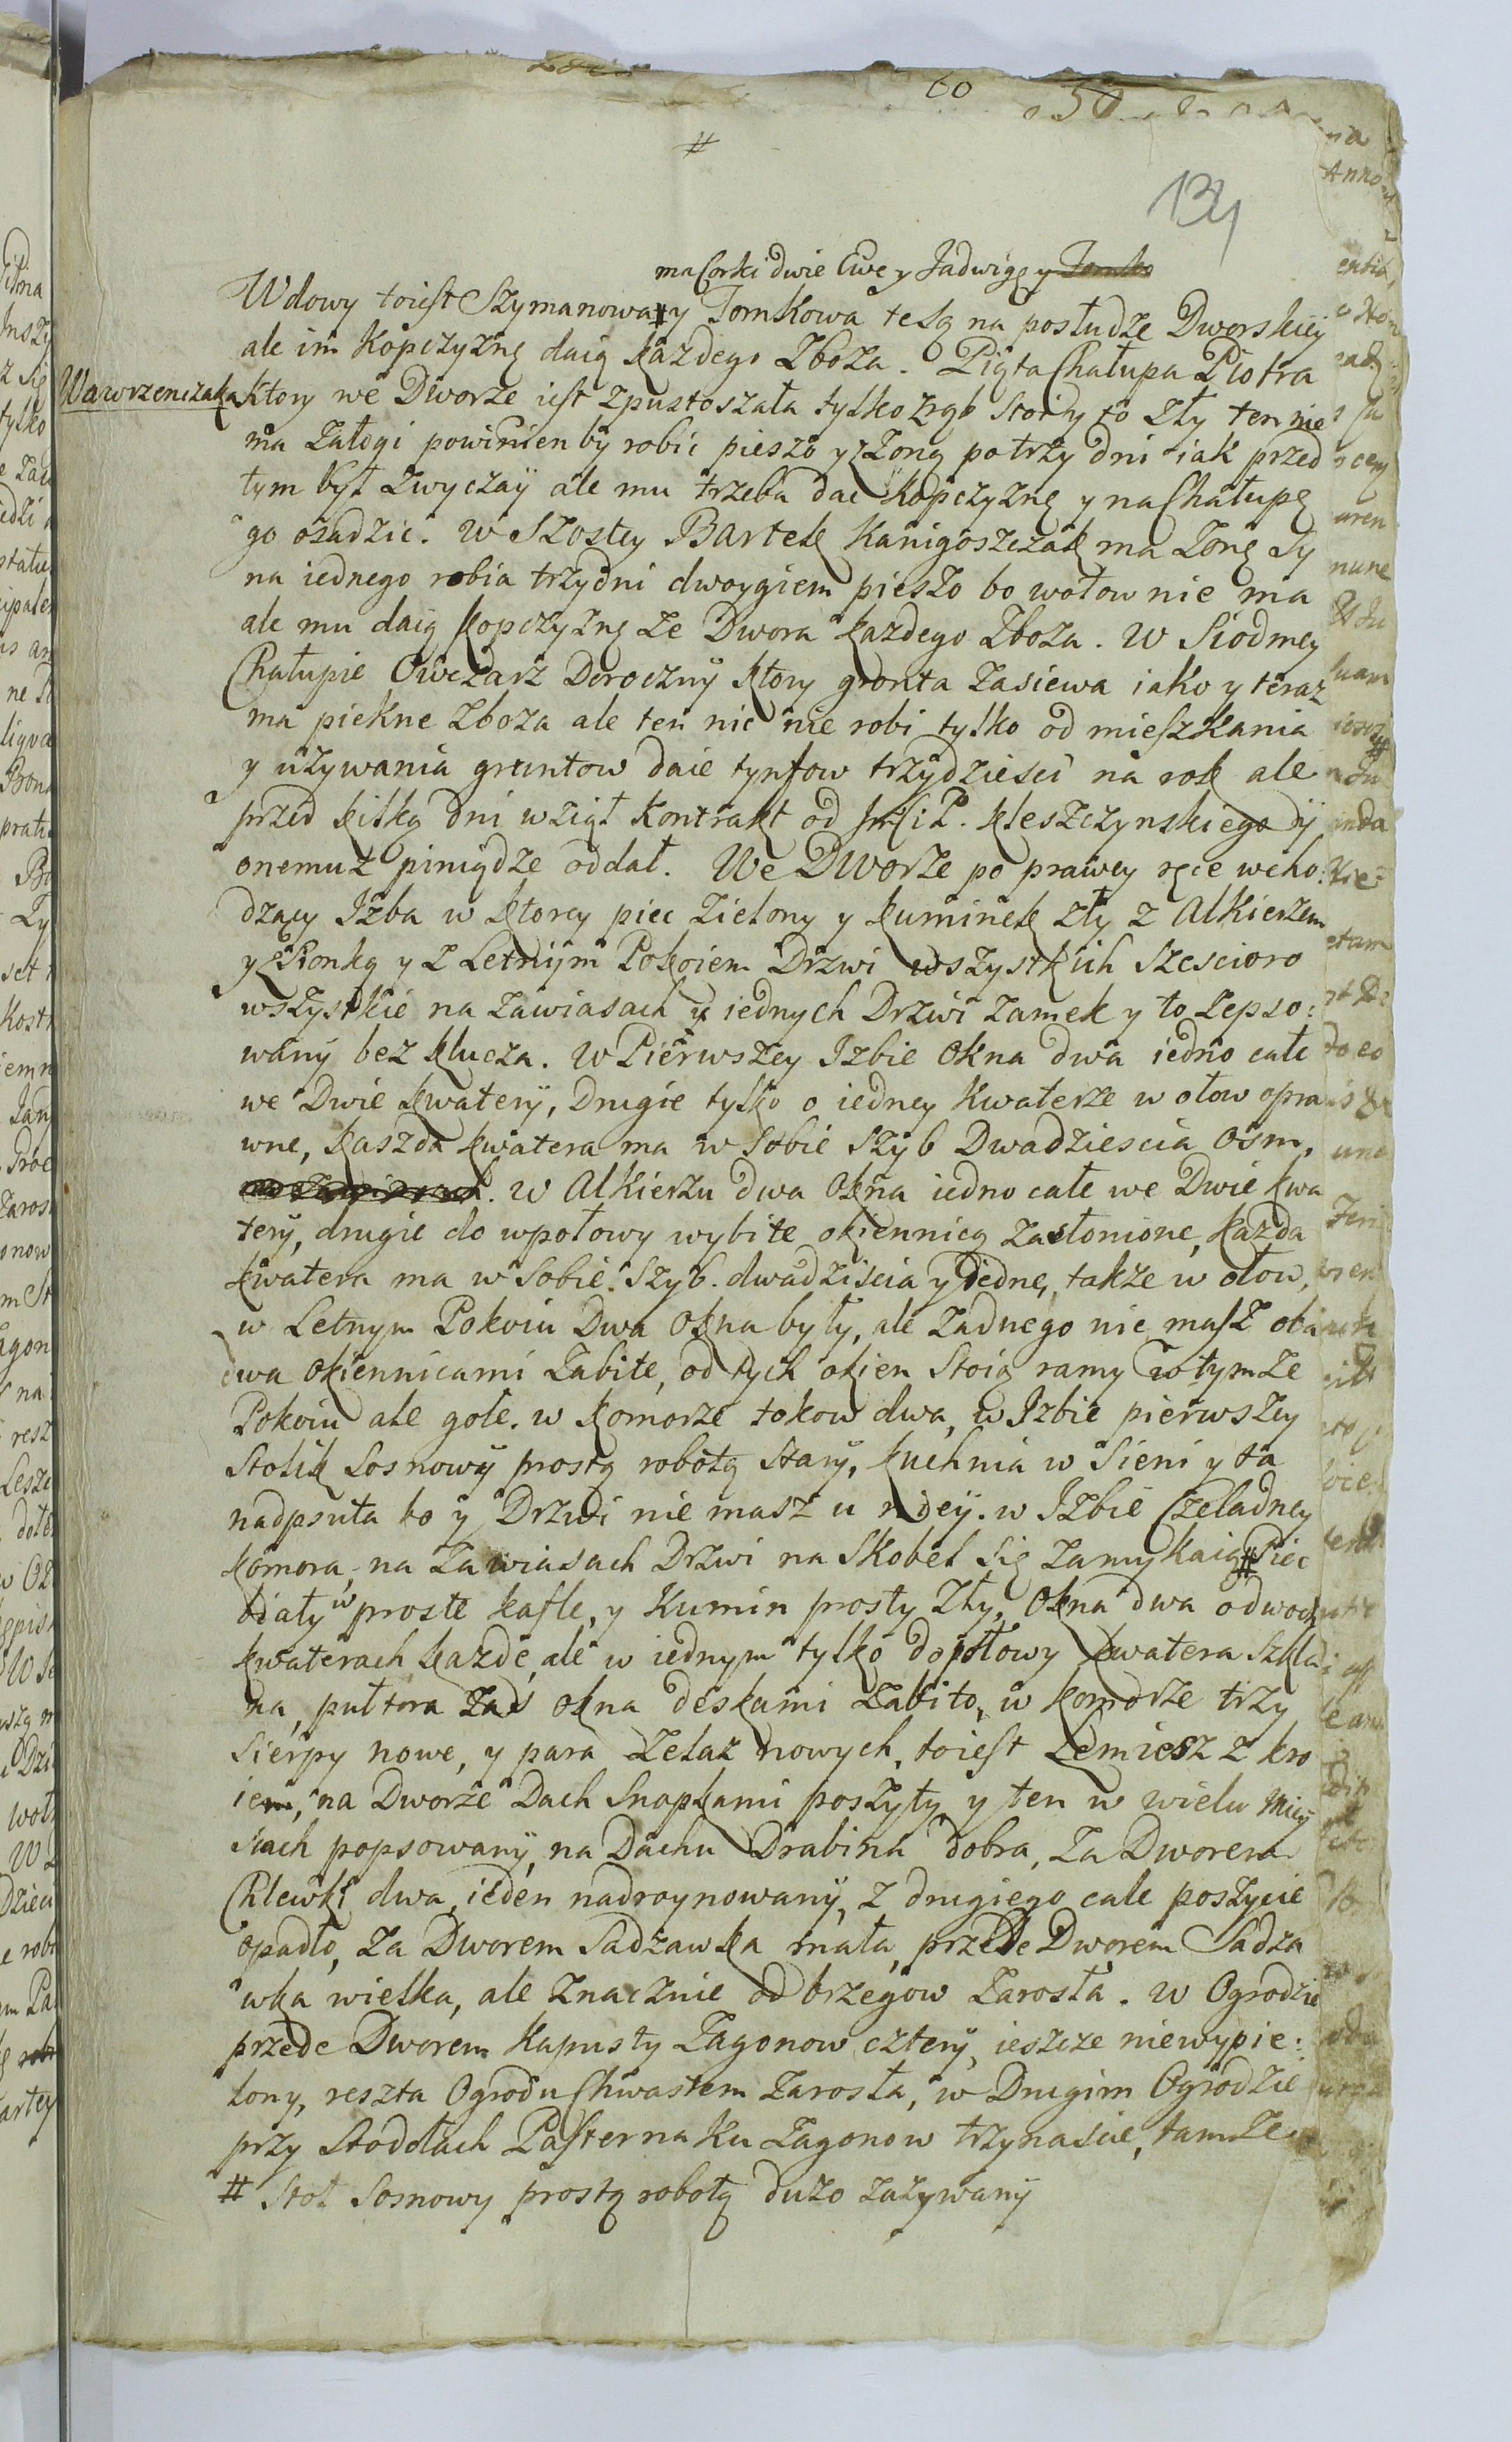 60
50
#
134
ma Corki dwie Ewę y Jadwigę y Tomko
Wdowy toiest Szymanowa # y Tomkowa te są na posłudze Dworskiey
ale im Kopczyznę daią każdego Zboża. Piąta Chałupa Piotra
Wawrzenczaka Ktory we Dworze iest zpustoszała tylko zrąb stoi y to zły ten nie
ma Załogi powinien by robic pieszo y z Zoną po trzy dni iak przed
tym był zwyczaÿ ale mu trzeba dac kopczyznę y na Chałupę
go osadzic. W Szostey Bartek Kanigoszczak ma Zonę Sy
na iednego robia trzy dni dwoygiem pieszo bo wołow nie ma
ale mu daią kopczyznę ze Dwora każdego Zboza. W Siodmey
Chałupie Owczarz Doroczny ktory gronta zasiewa iako y teraz
ma piekne zboza ale ten nic nie robi tylko od mieszkania
y używania gruntow daie tynfow trzydziesci na rok ale
przed kilką dni wziął Kontrakt od JmCi P. Kleszczynskiego ÿ
onemuż piniądze oddał. We Dworze po prawey ręce wcho:
dzący Izba w ktorey piec zielony y kuminek zły z Alkierzem
y Sionką y z Letnÿm Pokoiem Drzwi wszystkich szescioro
wszystkie na zawiasach u iednych Drzwi zamek y to zepso:
wanÿ bez klucza. W Pierwszey Izbie Okna dwa iedno całe
we Dwie kwaterÿ, Drugie tylko o iedney kwaterze w ołow opra
wne, kaszda kwatera ma w sobie szyb Dwadziescia Osm,
W Alkierzu dwa Okna iedno całe we Dwie kwa
terÿ, drugie do wpołowy wybite okiennicą zasłonione, każda
kwatera ma w sobie szyb. dwadziscia y iednę, także w ołow,
w Letnym Pokoiu Dwa Okna były, ale żadnego nie masz oba
dwa okiennicami zabite, od tych okien stoią ramy w tymze
Pokoiu ale gołe. w komorze tokow dwa, w Izbie pierwszey
Stolik sosnowÿ prostą robotą starÿ, kuchnia w Sieni y ta
nadpsuta bo y Drzwi nie masz u nieÿ. w Izbie Czeladney
komora, na zawiasach Drzwi na Skobel się zamykaią # Piec
biały w proste kafle, y Kumin prosty zły, Okna dwa o dwoch
kwaterach każde, ale w iednym tylko do połowy kwatera szkla
na, pułtora zas okna deskami zabito, w komorze trzy
sierpy nowe, y para zelaz nowych, toiest Lemiesz z kro
iem, na Dworze Dach Snopkami poszyty y ten w wielu Miey
scach popsowanÿ, na Dachu Drabina dobra, Za Dworem
Chlewki dwa, ieden nadroynowanÿ, z drugiego całe poszycie
opadło, za Dworem Sadzawka mała, przede Dworem Sadza
wka wielka, ale znacznie od brzegow zarosła. w Ogrodzie
przede Dworem Kapusty Zagonow czterÿ, ieszcze niewypie:
lony, reszta Ogrodu Chwastem zarosła, w Drugim Ogrodzie
przy Stodołach Pasternaku Zagonow trzynascie, tamze
# Stoł Sosnowy prostą robotą duzo zażywanÿ